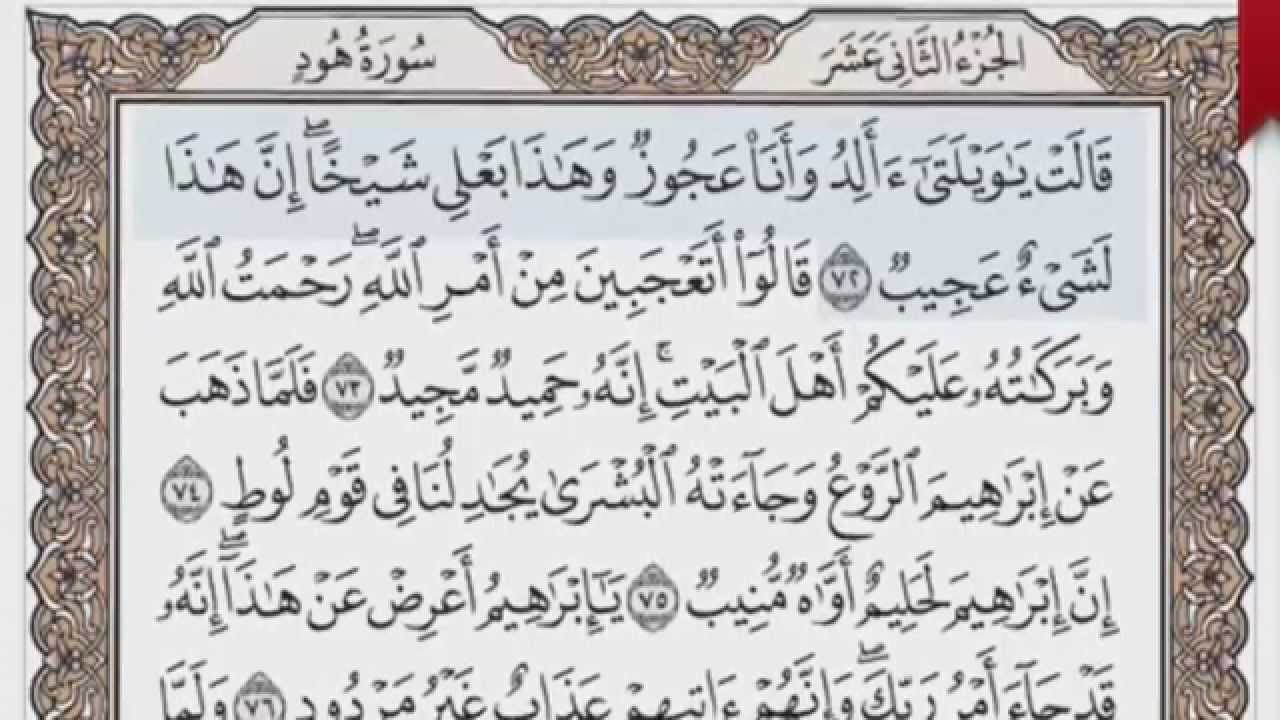 الجزء الثاني عشر
سورة هود
قَالَتْ يَٰوَيْلَتَىٰٓ ءَأَلِدُ وَأَنَا۠ عَجُوزٌ وَهَٰذَا بَعْلِى شَيْخًا ۖ إِنَّ هَٰذَا
لَشَىْءٌ عَجِيبٌ ٧٢ قَالُوٓا۟ أَتَعْجَبِينَ مِنْ أَمْرِ ٱللَّهِ ۖ رَحْمَتُ ٱللَّهِ
وَبَرَكَٰتُهُۥ عَلَيْكُمْ أَهْلَ ٱلْبَيْتِ ۚ إِنَّهُۥ حَمِيدٌ مَّجِيدٌ ٧٣ فَلَمَّا ذَهَبَ
عَنْ إِبْرَٰهِيمَ ٱلرَّوْعُ وَجَآءَتْهُ ٱلْبُشْرَىٰ يُجَٰدِلُنَا فِى قَوْمِ لُوطٍ ٧٤
إِنَّ إِبْرَٰهِيمَ لَحَلِيمٌ أَوَّٰهٌ مُّنِيبٌ ٧٥ يَٰٓإِبْرَٰهِيمُ أَعْرِضْ عَنْ هَٰذَآ ۖ إِنَّهُۥ
قَدْ جَآءَ أَمْرُ رَبِّكَ ۖ وَإِنَّهُمْ ءَاتِيهِمْ عَذَابٌ غَيْرُ مَرْدُودٍ ٧٦ وَلَمَّا